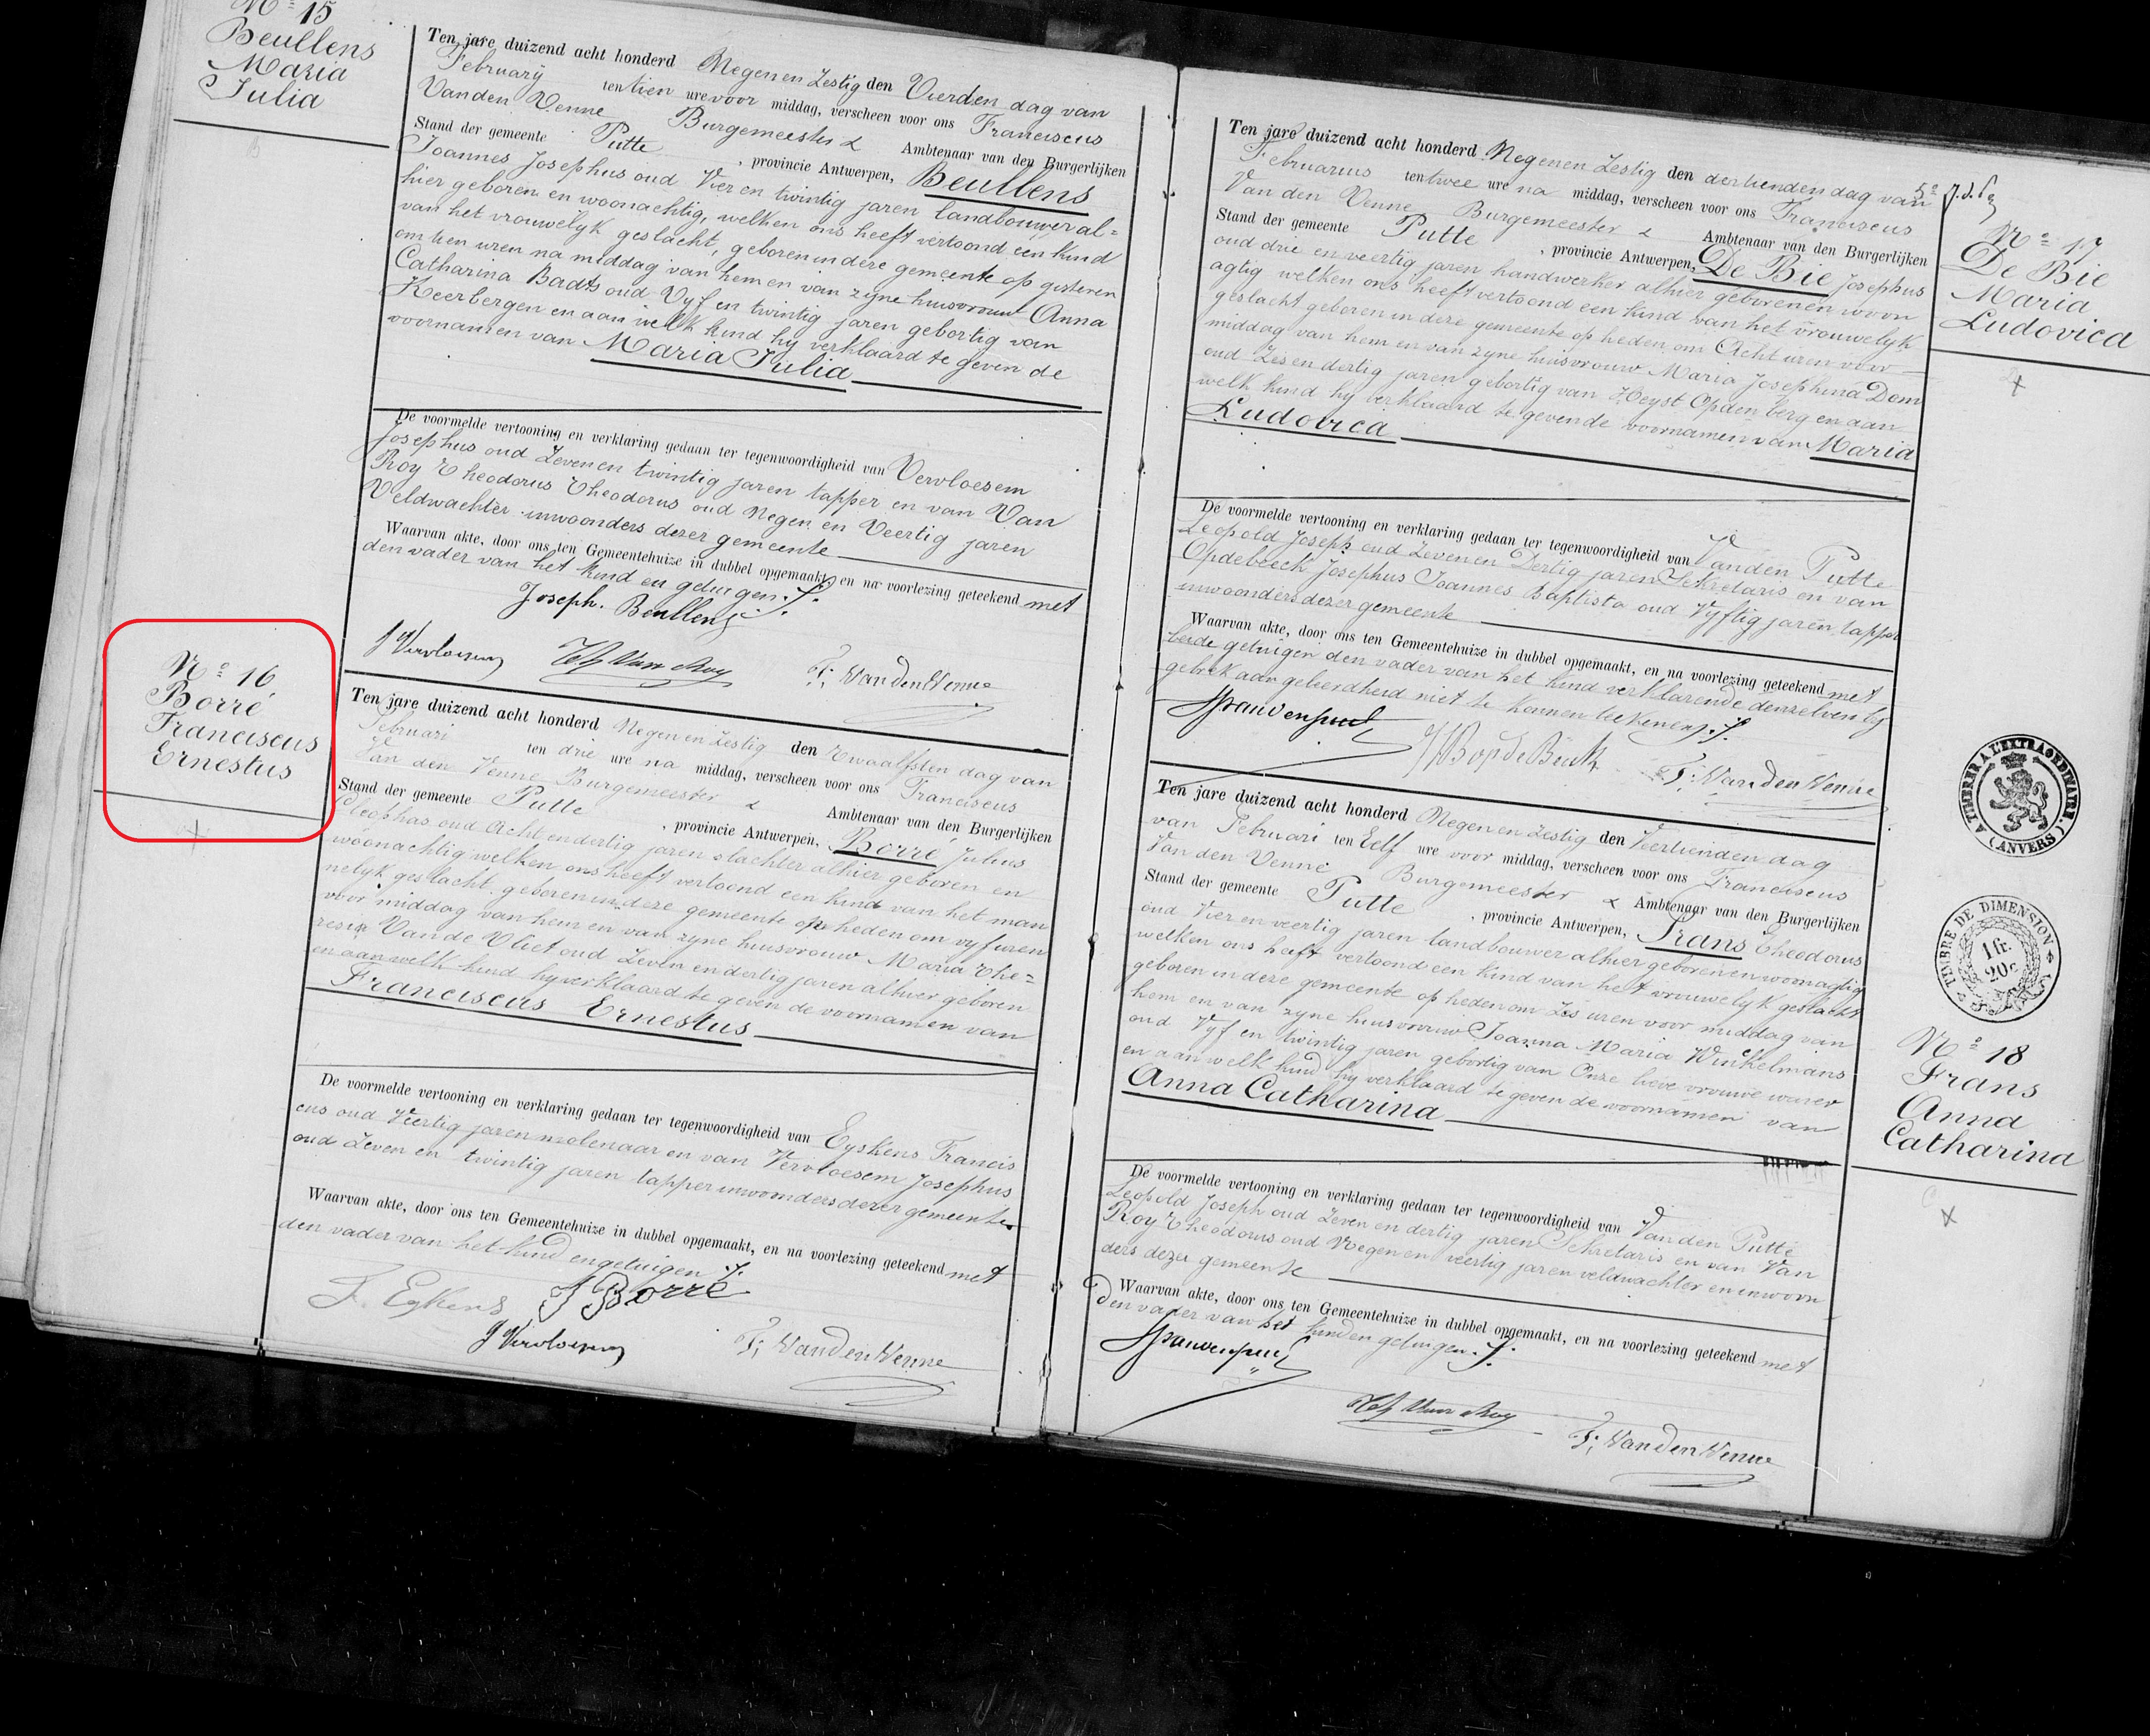 Nº 15
Beullens
Maria
Julia
Ten jare duizend acht honderd Negen en Zestig den Vierden dag van
February ten tien ure voor middag, verscheen voor ons Franciscus
Van den Venne Burgemeester &
Stand der gemeente Putte, provincie Antwerpen, Ambtenaar van den Burgerlijken
Beullens
Joannes Josephus oud Vier en twintig jaren landbouwer al=
hier geboren en woonachtig, welken ons heeft vertoond een kind
van het vrouwelyk geslacht, geboren in deze gemeente op gisteren
om tien uren na middag van hem en van zyne huisvrouw Anna
Catharina Baets oud Vyf en twintig jaren gebortig van
Keerbergen en aan welk kind hy verklaard te geven de
voornamen van Maria Julia
De voormelde vertooning en verklaring gedaan ter tegenwoordigheid van Vervloesem
Josephus oud Zeven en twintig jaren tapper en van Van
Roy Theodorus Theodorus oud Negen en Veertig jaren
Veldwachter inwoonders dezer gemeente
Waarvan akte, door ons ten Gemeentehuize in dubbel opgemaakt, en na voorlezing geteekend met
den vader van het kind en getuigen ./.
Joseph. Beullens
J Vervloesem Th Van Roy F: Van Den Venne
Nº 16
Borré
Franciscus
Ernestus
Ten jare duizend acht honderd Negen en Zestig den Twaalfsten dag van
Februari ten drie ure na middag, verscheen voor ons Franciscus
Van den Venne Burgemeester & Ambtenaar van den Burgerlijken
Stand der gemeente Putte, provincie Antwerpen, Borré Julius
Cleophas oud Acht en dertig jaren slachter alhier geboren en
woonachtig welken ons heeft vertoond een kind van het man
nelyk geslacht, geboren in deze gemeente op heden om vyf uren
voor middag van hem en van zyne huisvrouw Maria The=
resia Van de Vliet oud Zeven en dertig jaren alhier geboren
en aan welk kind hy verklaard te geven de voornamen van
Franciscus Ernestus
De voormelde vertooning en verklaring gedaan ter tegenwoordigheid van Eyskens Francis
cus oud Veertig jaren molenaar en van Vervloesem Josephus
oud Zeven en twintig jaren tapper inwoonders dezer gemeente
Waarvan akte, door ons ten Gemeentehuize in dubbel opgemaakt, en na voorlezing geteekend met
den vader van het kind en getuigen ./.
F. Eykens J Borré
J Vervloesem F: Van Den Venne
Ten jare duizend acht honderd Negen en Zestig den dertienden dag van
Februarius ten twee ure na middag, verscheen voor ons Franciscus
Van den Venne Burgemeester & Ambtenaar van den Burgerlijken
Stand der gemeente Putte, provincie Antwerpen, De Bie Josephus
oud drie en veertig jaren handwerker alhier geboren en woon
agtig welken ons heeft vertoond een kind van het vrouwelyk
geslacht geboren in deze gemeente op heden om Acht uren voor
middag van hem en van zyne huisvrouw Maria Josephina Dom
oud Zes en dertig jaren gebortig van Heyst Op den Berg en aan
welk kind hy verklaard te geven de voornamen van Maria
Ludovica
De voormelde vertooning en verklaring gedaan ter tegenwoordigheid van Van den Putte
Leopold Joseph oud Zeven en Dertig jaren Sekretaris en van
Opdebeeck Josephus Joannes Baptista oud Vyftig jaren tapper
inwoonders dezer gemeente
Waarvan akte, door ons ten Gemeentehuize in dubbel opgemaakt, en na voorlezing geteekend met
beide getuigen den vader van het kind verklarende denzelven by
gebrek aan geleerdheid niet te konnen teekenen ./.
F: Van Den Venne
Nº 17
De Bie
Maria
Ludovica
Ten jare duizend acht honderd Negen en Zestig den Veertienden dag
van Februari ten Elf ure voor middag, verscheen voor ons Franciscus
Van den Venne Burgemeester & Ambtenaar van den Burgerlijken
Stand der gemeente Putte, provincie Antwerpen, Frans Theodorus
oud Vier en veertig jaren landbouwer alhier geboren en woonagtig
welken ons heeft vertoond een kind van het vrouwelyk geslacht
geboren in deze gemeente op heden om Zes uren voor middag van
hem en van zyne huisvrouw Joanna Maria Winkelmans
oud Vyf en twintig jaren gebortig van Onze lieve vrouwe waver
en aan welk kind hy verklaard te geven de voornamen van
Anna Catharina
De voormelde vertooning en verklaring gedaan ter tegenwoordigheid van Van den Putte
Leopold Joseph oud Zeven en dertig jaren Sekretaris en van Van
Roy Theodorus oud Negen en veertig jaren veldwachter en inwoon
ders dezer gemeente
Waarvan akte, door ons ten Gemeentehuize in dubbel opgemaakt, en na voorlezing geteekend met
den vader van het kind en getuigen ./.
Th Van Roy F: Van Den Venne
A TIMBRER A L'EXTRAORDINAIRE.
(ANVERS)
TIMBRE DE DIMENSION
1 fr.
20c
Nº 18
Frans
Anna
Catharina